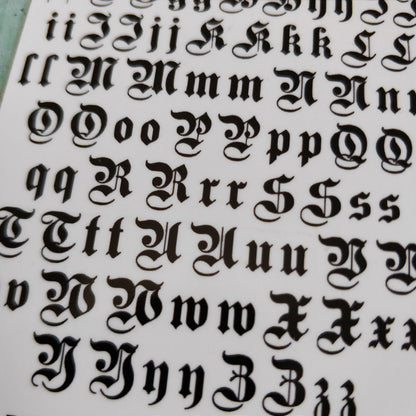 i i J J j j K K k k L L
l l M M m m N N n n
O O o o P P p p Q Q
q q R R r r S S s s
T T t t U U u u V V
v W W w w X X x x
Y Y y y Z Z z z